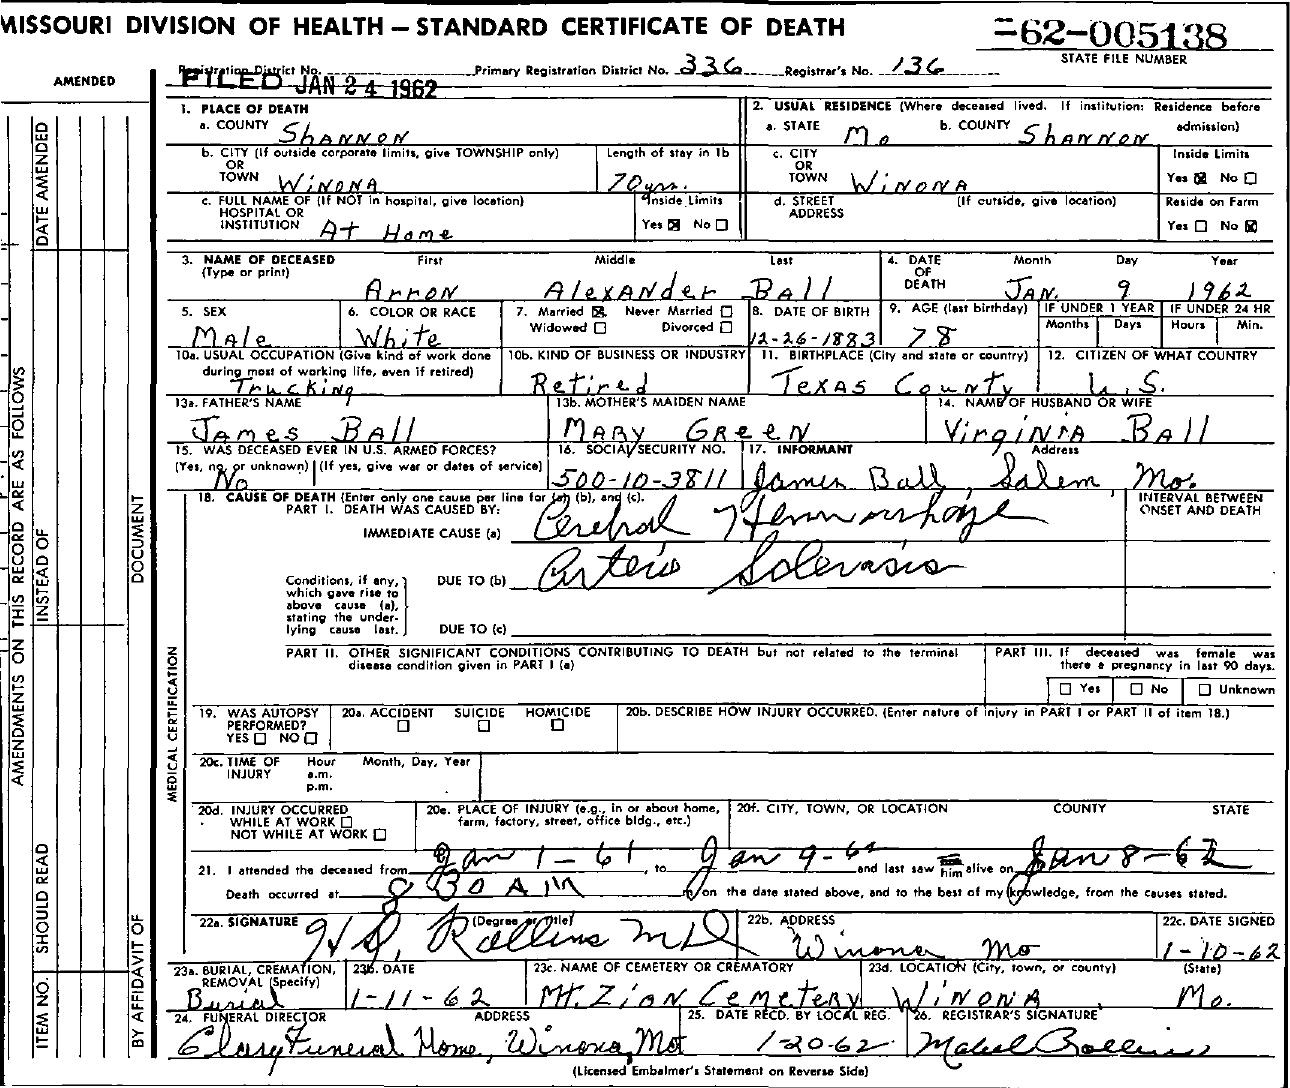 MISSOURI DIVISION OF HEALTH — STANDARD CERTIFICATE OF DEATH
=62-005138
STATE FILE NUMBER
AMENDED
Registration District No. Primary Registration District No. 336 Registrar's No. 136
FILED JAN 24 1962
AMENDMENTS ON THIS RECORD ARE AS FOLLOWS
DATE AMENDED
INSTEAD OF
DOCUMENT
SHOULD READ
ITEM NO.
BY AFFIDAVIT OF
MEDICAL CERTIFICATION
1. PLACE OF DEATH
a. COUNTY Shannon
b. CITY (If outside corporate limits, give TOWNSHIP only)
OR
TOWN Winona
Length of stay in 1b
70 yrs.
c. FULL NAME OF (If NOT in hospital, give location)
HOSPITAL OR
INSTITUTION At Home
Inside Limits
Yes ☒ No ☐
2. USUAL RESIDENCE (Where deceased lived. If institution: Residence before admission)
a. STATE Mo b. COUNTY Shannon
c. CITY
OR
TOWN Winona
Inside Limits
Yes ☒ No ☐
d. STREET (If outside, give location)
ADDRESS
Reside on Farm
Yes ☐ No ☒
3. NAME OF DECEASED First Middle Last
(Type or print)
Arron Alexander Ball
4. DATE OF DEATH Month Day Year
Jan. 9 1962
5. SEX
Male
6. COLOR OR RACE
White
7. Married ☒ Never Married ☐
Widowed ☐ Divorced ☐
8. DATE OF BIRTH
12-26-1883
9. AGE (last birthday)
78
IF UNDER 1 YEAR
Months Days
IF UNDER 24 HR
Hours Min.
10a. USUAL OCCUPATION (Give kind of work done
during most of working life, even if retired)
Trucking
10b. KIND OF BUSINESS OR INDUSTRY
Retired
11. BIRTHPLACE (City and state or country)
Texas County
12. CITIZEN OF WHAT COUNTRY
U.S.
13a. FATHER'S NAME
James Ball
13b. MOTHER'S MAIDEN NAME
Mary Green
14. NAME OF HUSBAND OR WIFE
Virginia Ball
15. WAS DECEASED EVER IN U.S. ARMED FORCES?
(Yes, no, or unknown) (If yes, give war or dates of service)
No
16. SOCIAL SECURITY NO.
500-10-3811
17. INFORMANT Address
James Ball, Salem Mo.
18. CAUSE OF DEATH (Enter only one cause per line for (a) (b), and (c).
PART I. DEATH WAS CAUSED BY:
IMMEDIATE CAUSE (a) Cerebral Hemmorrhage
INTERVAL BETWEEN
ONSET AND DEATH
Conditions, if any,
which gave rise to
above cause (a),
stating the under-
lying cause last.
DUE TO (b) Arterio Sclerosis
DUE TO (c)
PART II. OTHER SIGNIFICANT CONDITIONS CONTRIBUTING TO DEATH but not related to the terminal
disease condition given in PART I (a)
PART III. If deceased was female was
there a pregnancy in last 90 days.
☐ Yes ☐ No ☐ Unknown
19. WAS AUTOPSY
PERFORMED?
YES ☐ NO ☐
20a. ACCIDENT SUICIDE HOMICIDE
☐ ☐ ☐
20b. DESCRIBE HOW INJURY OCCURRED. (Enter nature of injury in PART I or PART II of item 18.)
20c. TIME OF Hour Month, Day, Year
INJURY a.m.
p.m.
20d. INJURY OCCURRED
WHILE AT WORK ☐
NOT WHILE AT WORK ☐
20e. PLACE OF INJURY (e.g., in or about home,
farm, factory, street, office bldg., etc.)
20f. CITY, TOWN, OR LOCATION COUNTY STATE
21. I attended the deceased from Jan 1-61, to Jan 9-62 and last saw him alive on Jan 8-62
Death occurred at 8 30 AM on the date stated above, and to the best of my knowledge, from the causes stated.
22a. SIGNATURE (Degree or title)
Rollins MD
22b. ADDRESS
Winona Mo
22c. DATE SIGNED
1-10-62
23a. BURIAL, CREMATION,
REMOVAL (Specify)
Burial
23b. DATE
1-11-62
23c. NAME OF CEMETERY OR CREMATORY
Mt. Zion Cemetery
23d. LOCATION (City, town, or county) (State)
Winona Mo.
24. FUNERAL DIRECTOR ADDRESS
Clary Funeral Home, Winona, Mo
25. DATE RECD. BY LOCAL REG.
1-20-62
26. REGISTRAR'S SIGNATURE
Mabel Rollins
(Licensed Embalmer's Statement on Reverse Side)